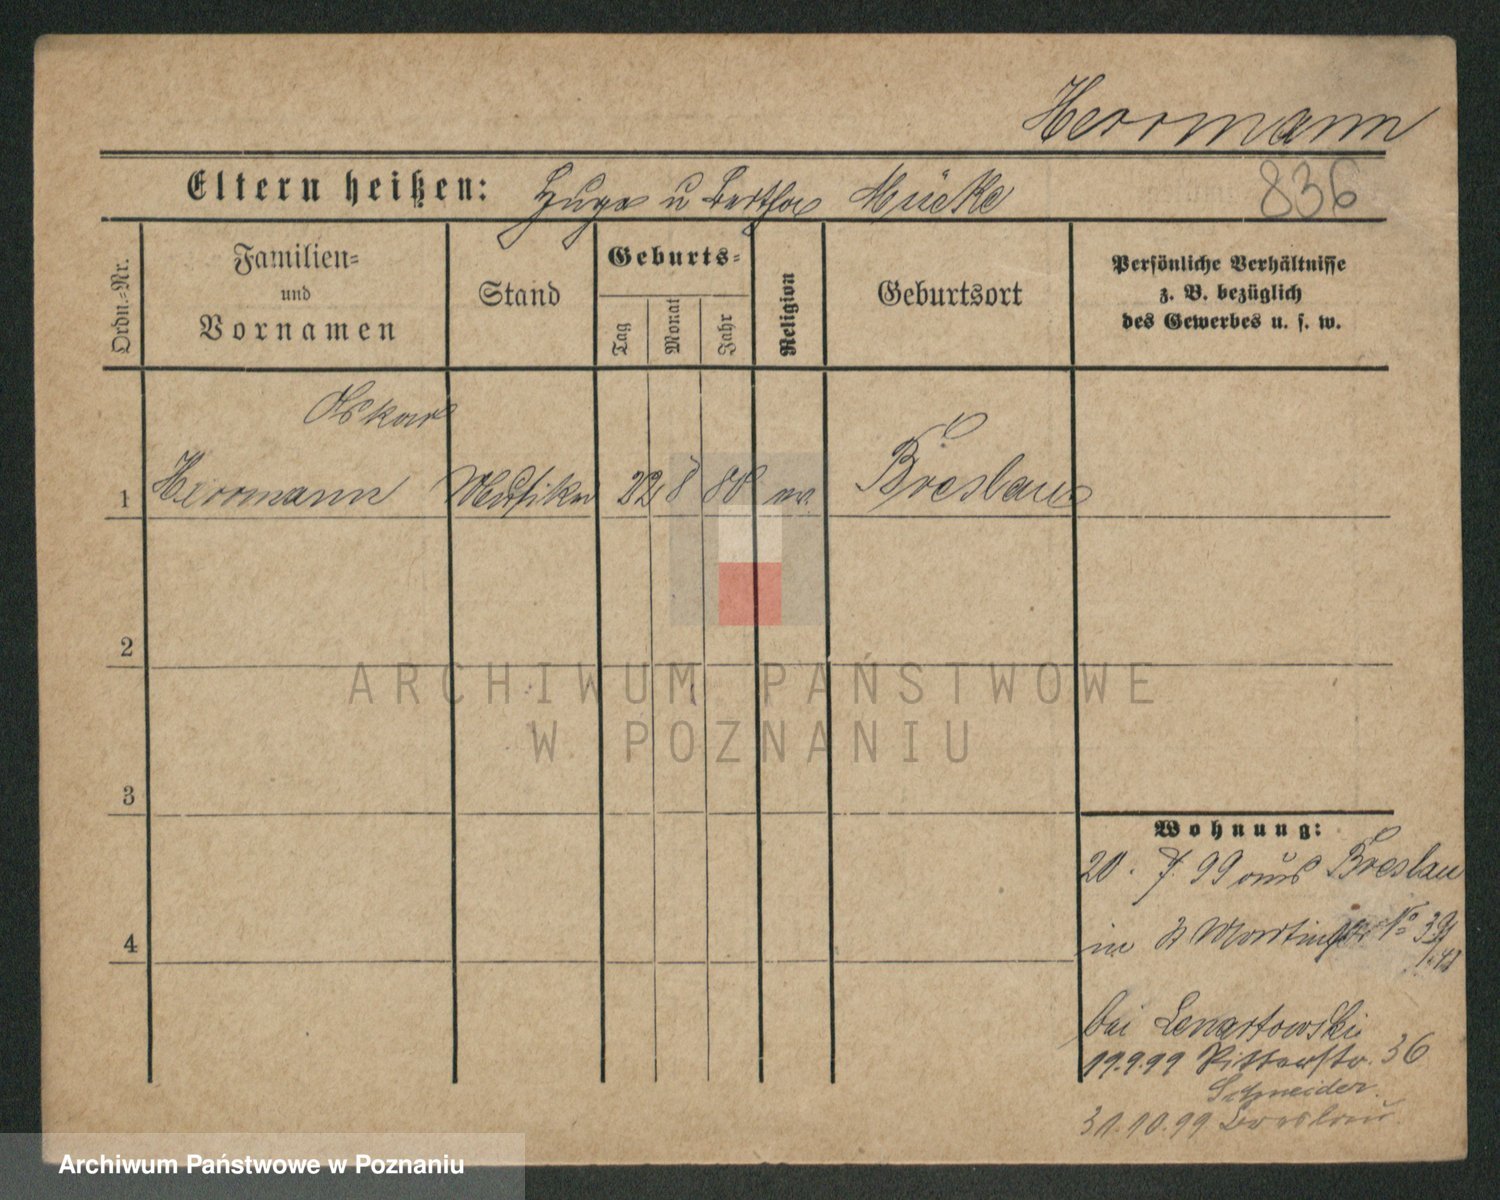 Herrmann
Eltern heißen: Hugo u Bertha Mücke
836
Ordn.=Nr.
Familien=
und
Vornamen
Stand
Geburts=
Tag
Monat
Jahr
Religion
Geburtsort
Persönliche Verhältnisse
z. B. bezüglich
des Gewerbes u. s. w.
Oskar
1 Herrmann Musiker 22 8 80 ev. Breslau
2
3
4
ARCHIWUM PAŃSTWOWE
W POZNANIU
Wohnung:
20. 7. 99 aus Breslau
in St Martinstr No
bei Lenartowski
19.9.99 Ritterstr. 36
Schneider.
31.10.99 Breslau
Archiwum Państwowe w Poznaniu